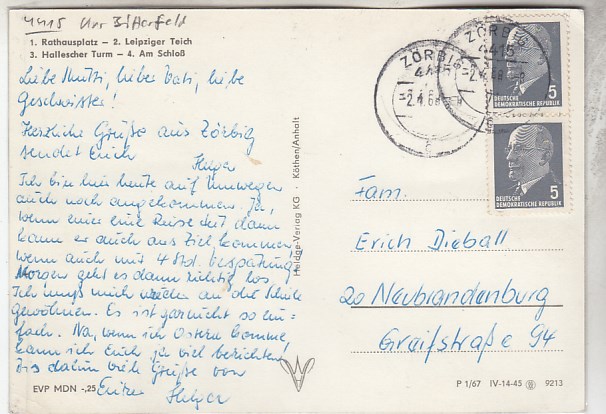 4415 Krs Bitterfeld
1. Rathausplatz – 2. Leipziger Teich
3. Hallescher Turm – 4. Am Schloß
Liebe Mutti, lieber Vati, liebe
Geschwister!
Herzliche Grüße aus Zörbig
sendet Euch
Holger
Ich bin hier heute auf Umwegen
auch noch angekommen. Ja,
wenn einer eine Reise tut dann
kann er auch ans Ziel kommen,
wenn auch mit 4 Std. Verspätung.
Morgen geht es dann richtig los.
Ich muß mich wieder an die Schule
gewöhnen. Es ist garnicht so ein=
fach. Na, wenn ich Ostern komme,
kann ich Euch ja viel berichten.
Bis dahin viele Grüße von
Eurem Holger
EVP MDN -,25
Heldge-Verlag KG · Köthen/Anhalt
ZÖRBIG
4415
-2.4.68
c
ZÖRBIG
4415
-2.4.68
DEUTSCHE
DEMOKRATISCHE REPUBLIK
5
DEUTSCHE
DEMOKRATISCHE REPUBLIK
5
Fam.
Erich Dieball
20 Neubrandenburg
Greifstraße 94
P 1/67 IV-14-45 9213